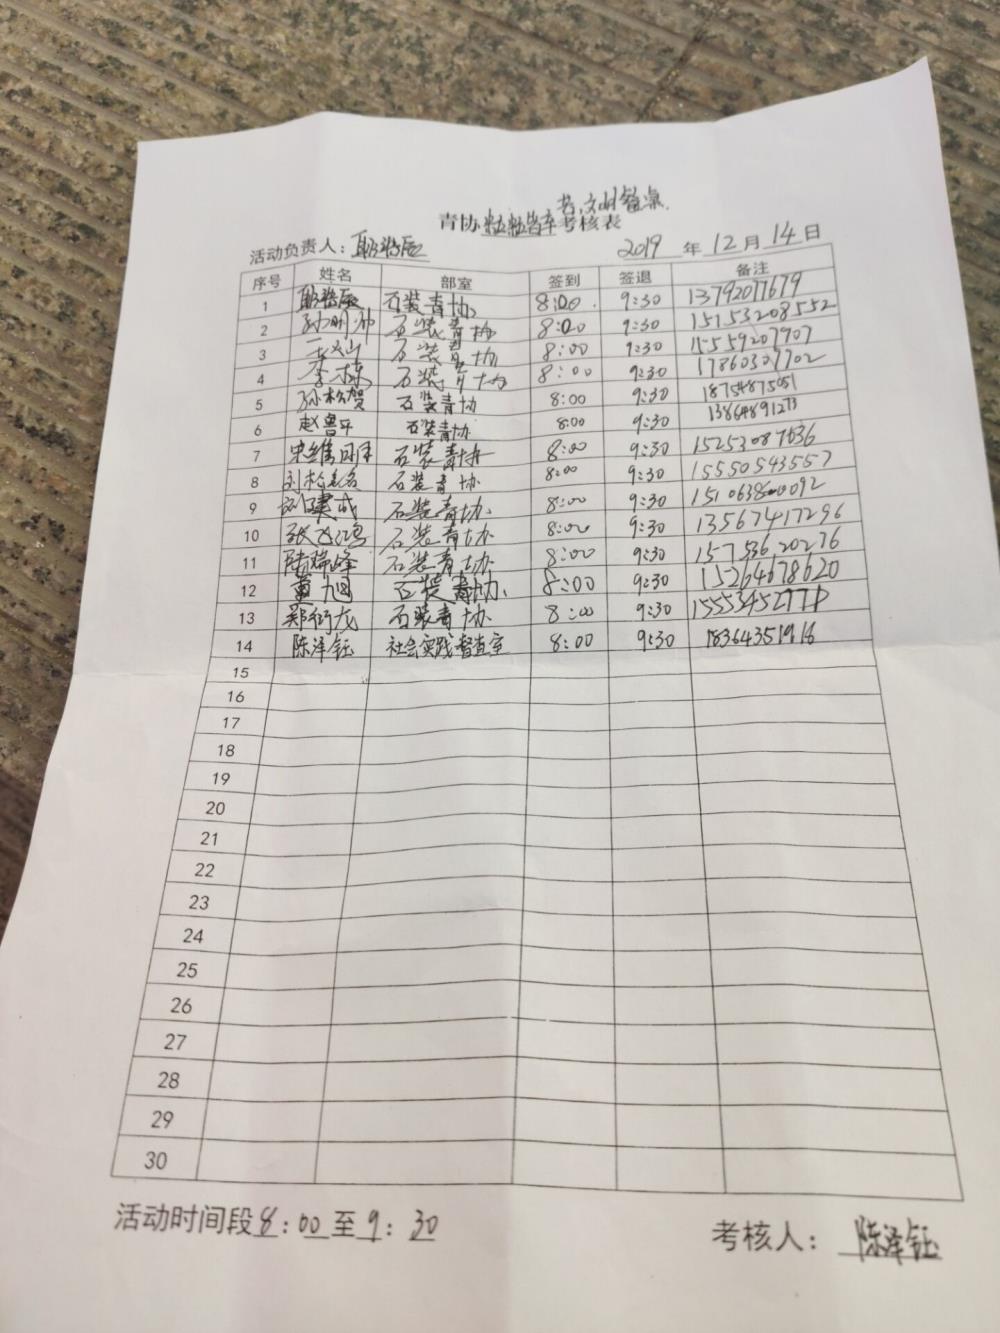 青协粒粒皆辛苦,文明餐桌考核表
活动负责人: 2019 年 12 月 14 日
序号 姓名 部室 签到 签退 备注
1 石装青协 8:00 9:30 13792077679
2 孙明帅 石装青协 8:00 9:30 15153208552
3 石装青协 8:00 9:30 15559207907
4 李栋 石装青协 8:00 9:30 17860307702
5 孙松贺 石装青协 8:00 9:30 18754875051
6 赵曾平 石装青协 8:00 9:30 13864891273
7 石装青协 8:00 9:30 15253087636
8 石装青协 8:00 9:30 15550543557
9 刘建成 石装青协 8:00 9:30
10 张飞鸿 石装青协 8:00 9:30 13567417296
11 陆瑞峰 石装青协 8:00 9:30 15753620276
12 黄旭 石装青协 8:00 9:30 15264678620
13 郑衍龙 石装青协 8:00 9:30
14 陈泽钰 社会实践督查室 8:00 9:30 18364351916
15
16
17
18
19
20
21
22
23
24
25
26
27
28
29
30
活动时间段8:00至9:30 考核人:陈泽钰